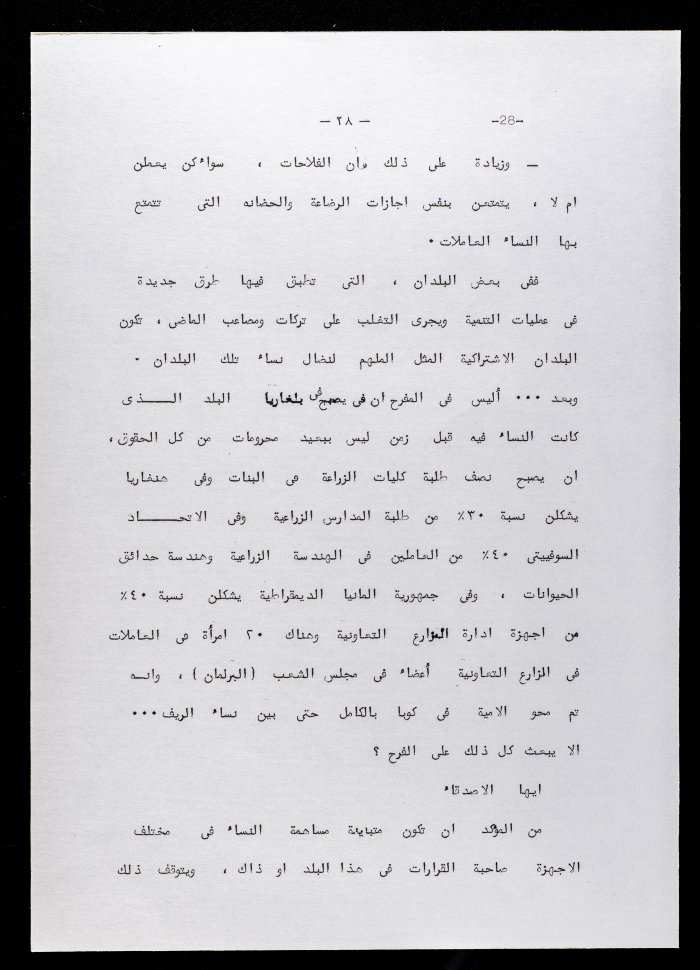 - ٢٨ -
-28-
- وزيادة على ذلك فان الفلاحات ، سواء كن يعملن
ام لا ، يتمتعن بنفس اجازات الرضاعة والحضانه التى تتمتع
بها النساء العاملات .
ففى بعض البلدان ، التى تطبق فيها طرق جديدة
فى عمليات التنمية ويجرى التغلب على تركات ومصاعب الماضى ، تكون
البلدان الاشتراكية المثل الملهم لنضال نساء تلك البلدان .
وبعد ... أليس فى المفرح ان فى يصبح فى بلغاريا البلد الــذى
كانت النساء فيه قبل زمن ليس ببعيد محرومات من كل الحقوق ،
ان يصبح نصف طلبة كليات الزراعة فى البنات وفى هنغاريا
يشكلن نسبة ٣٠٪ من طلبة المدارس الزراعية وفى الاتحـــاد
السوفييتى ٤٠٪ من العاملين فى الهندسة الزراعية وهندسة حدائق
الحيوانات ، وفى جمهورية المانيا الديمقراطية يشكلن نسبة ٤٠٪
من اجهزة ادارة المزارع التعاونية وهناك ٢٠ امرأة من العاملات
فى المزارع التعاونية أعضاء فى مجلس الشعب (البرلمان) ، وانـه
تم محو الامية فى كوبا بالكامل حتى بين نساء الريف ...
الا يبعث كل ذلك على الفرح ؟
ايها الاصدقاء
من المؤكد ان تكون متباينة مساهمة النساء فى مختلف
الاجهزة صاحبة القرارات فى هذا البلد او ذاك ، ويتوقف ذلك